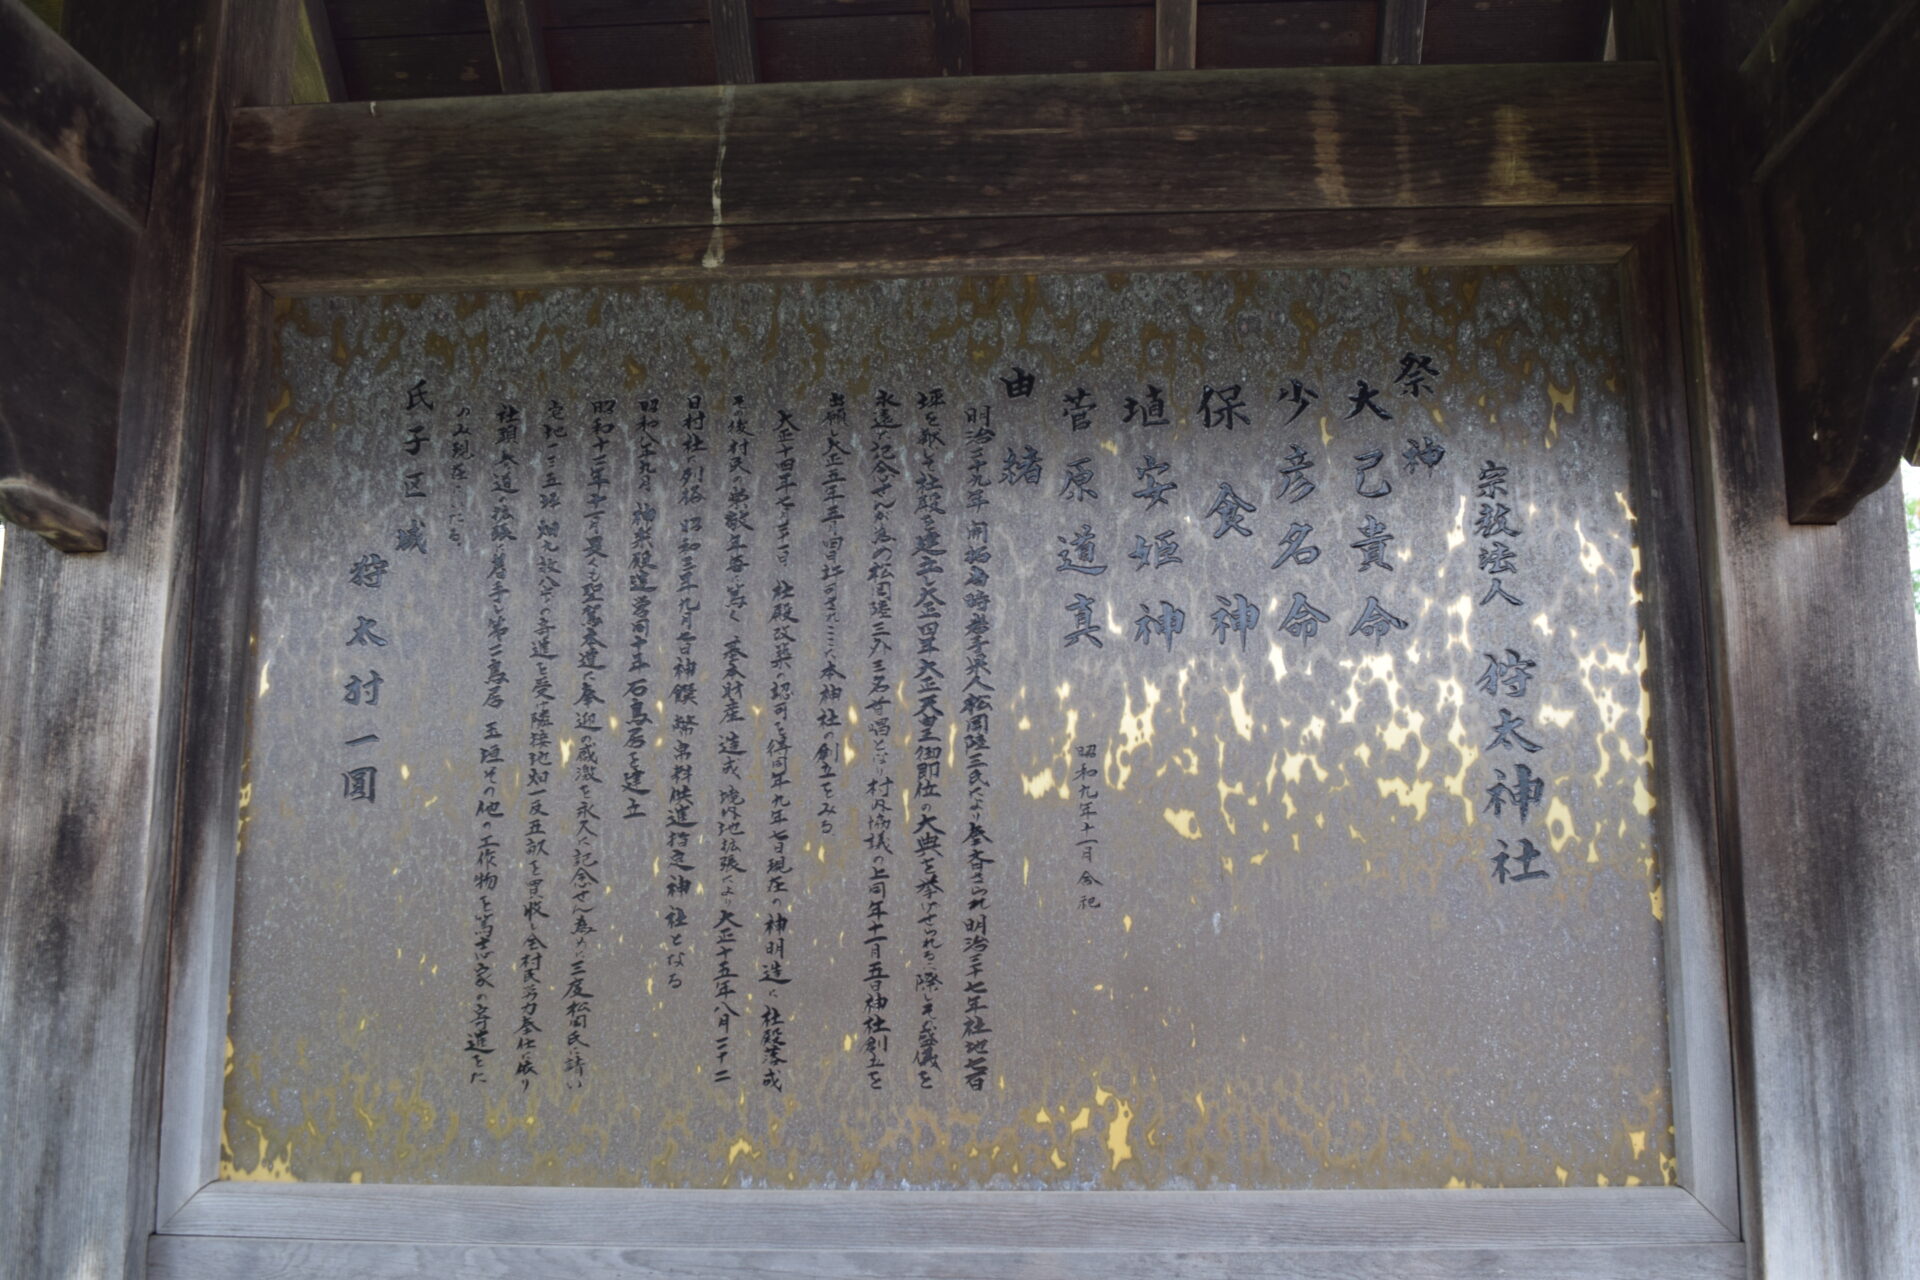 宗教法人 狩太神社
祭神
大己貴命
少彦名命
保食神
埴安姫神
菅原道真
昭和九年十一月合祀
由緒
明治二十九年開拓当時岩手県人松岡陸三氏により奉斎され明治三十七年社地七百
坪を献じて社殿を建立し大正四年大正天皇御即位の大典を挙げせられる際しその盛儀を
永遠に記念せんが為め松岡陸三外三名首唱となり村内協議の上同年十一月五日神社創立を
出願し大正五年五月四日許可されここに本神社の創立をみる
大正十四年七月 社殿改築の認可を得同年九年七日現在の神明造に社殿落成
その後村民の崇敬年毎に篤く 基本財産造成 境内地拡張により大正十五年八月二十二
日村社に列格 昭和三年九月七日神饌幣帛料供進指定神社となる
昭和八年九月 神楽殿造営同十年石鳥居を建立
昭和十一年十一月畏くも聖駕本道に奉迎の感激を永久に記念せん為めに三度松岡氏に請い
宅地一三五坪 畑九畝八歩の寄進を受け隣接地畑一反五畝を買収し全村民労力奉仕に依り
社頭 兵道の拡張に着手し第二鳥居 玉垣その他の工作物を篤志家の寄進をた
のみ現在にいたる
氏子区域
狩太村一圓